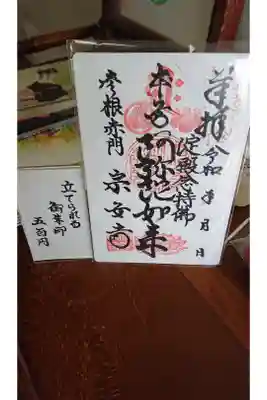 奉拝
令和 年 月 日
淀殿念持佛
本尊 阿弥陀如来
彦根赤門 宗安寺
立てられる
御朱印
五百円